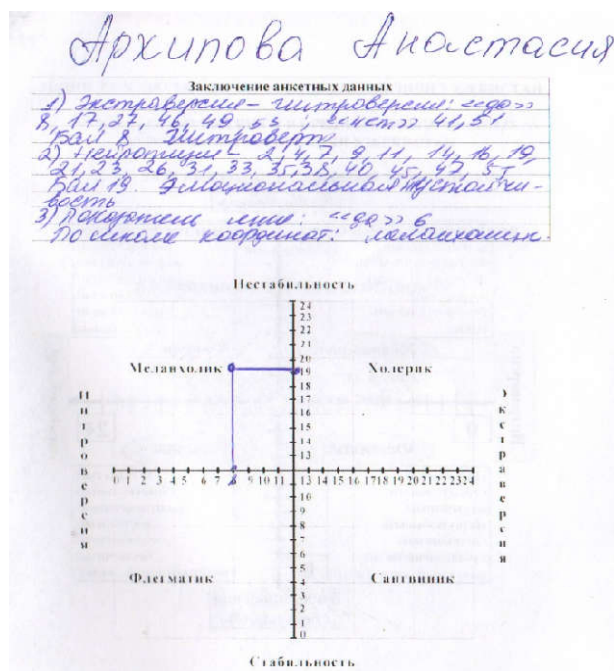 Архипова Анастасия
Заключение анкетных данных
1) Экстраверсия – интроверсия: «да»
8, 17, 27, 46, 49, 53; «нет» 41, 51
Бал 8. Интроверт
2) Нейротизм – 2, 4, 7, 9, 11, 14, 16, 19,
21, 23, 26, 31, 33, 35, 38, 40, 45, 47, 55,
Бал 19. Эмоциональная
вость
3) лжи: «да» 6
По шкале координат: меланхолик.
Нестабильность
24
23
22
21
20
19
Меланхолик
Холерик
18
17
16
15
14
13
Интроверсия
Экстраверсия
0 1 2 3 4 5 6 7 8 9 10 11 12 13 14 15 16 17 18 19 20 21 22 23 24
10
9
8
7
6
5
4
3
2
1
0
Флегматик
Сангвиник
Стабильность